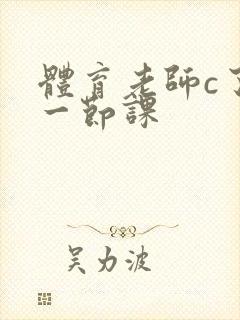 體育老師c了
一節課
吴力波